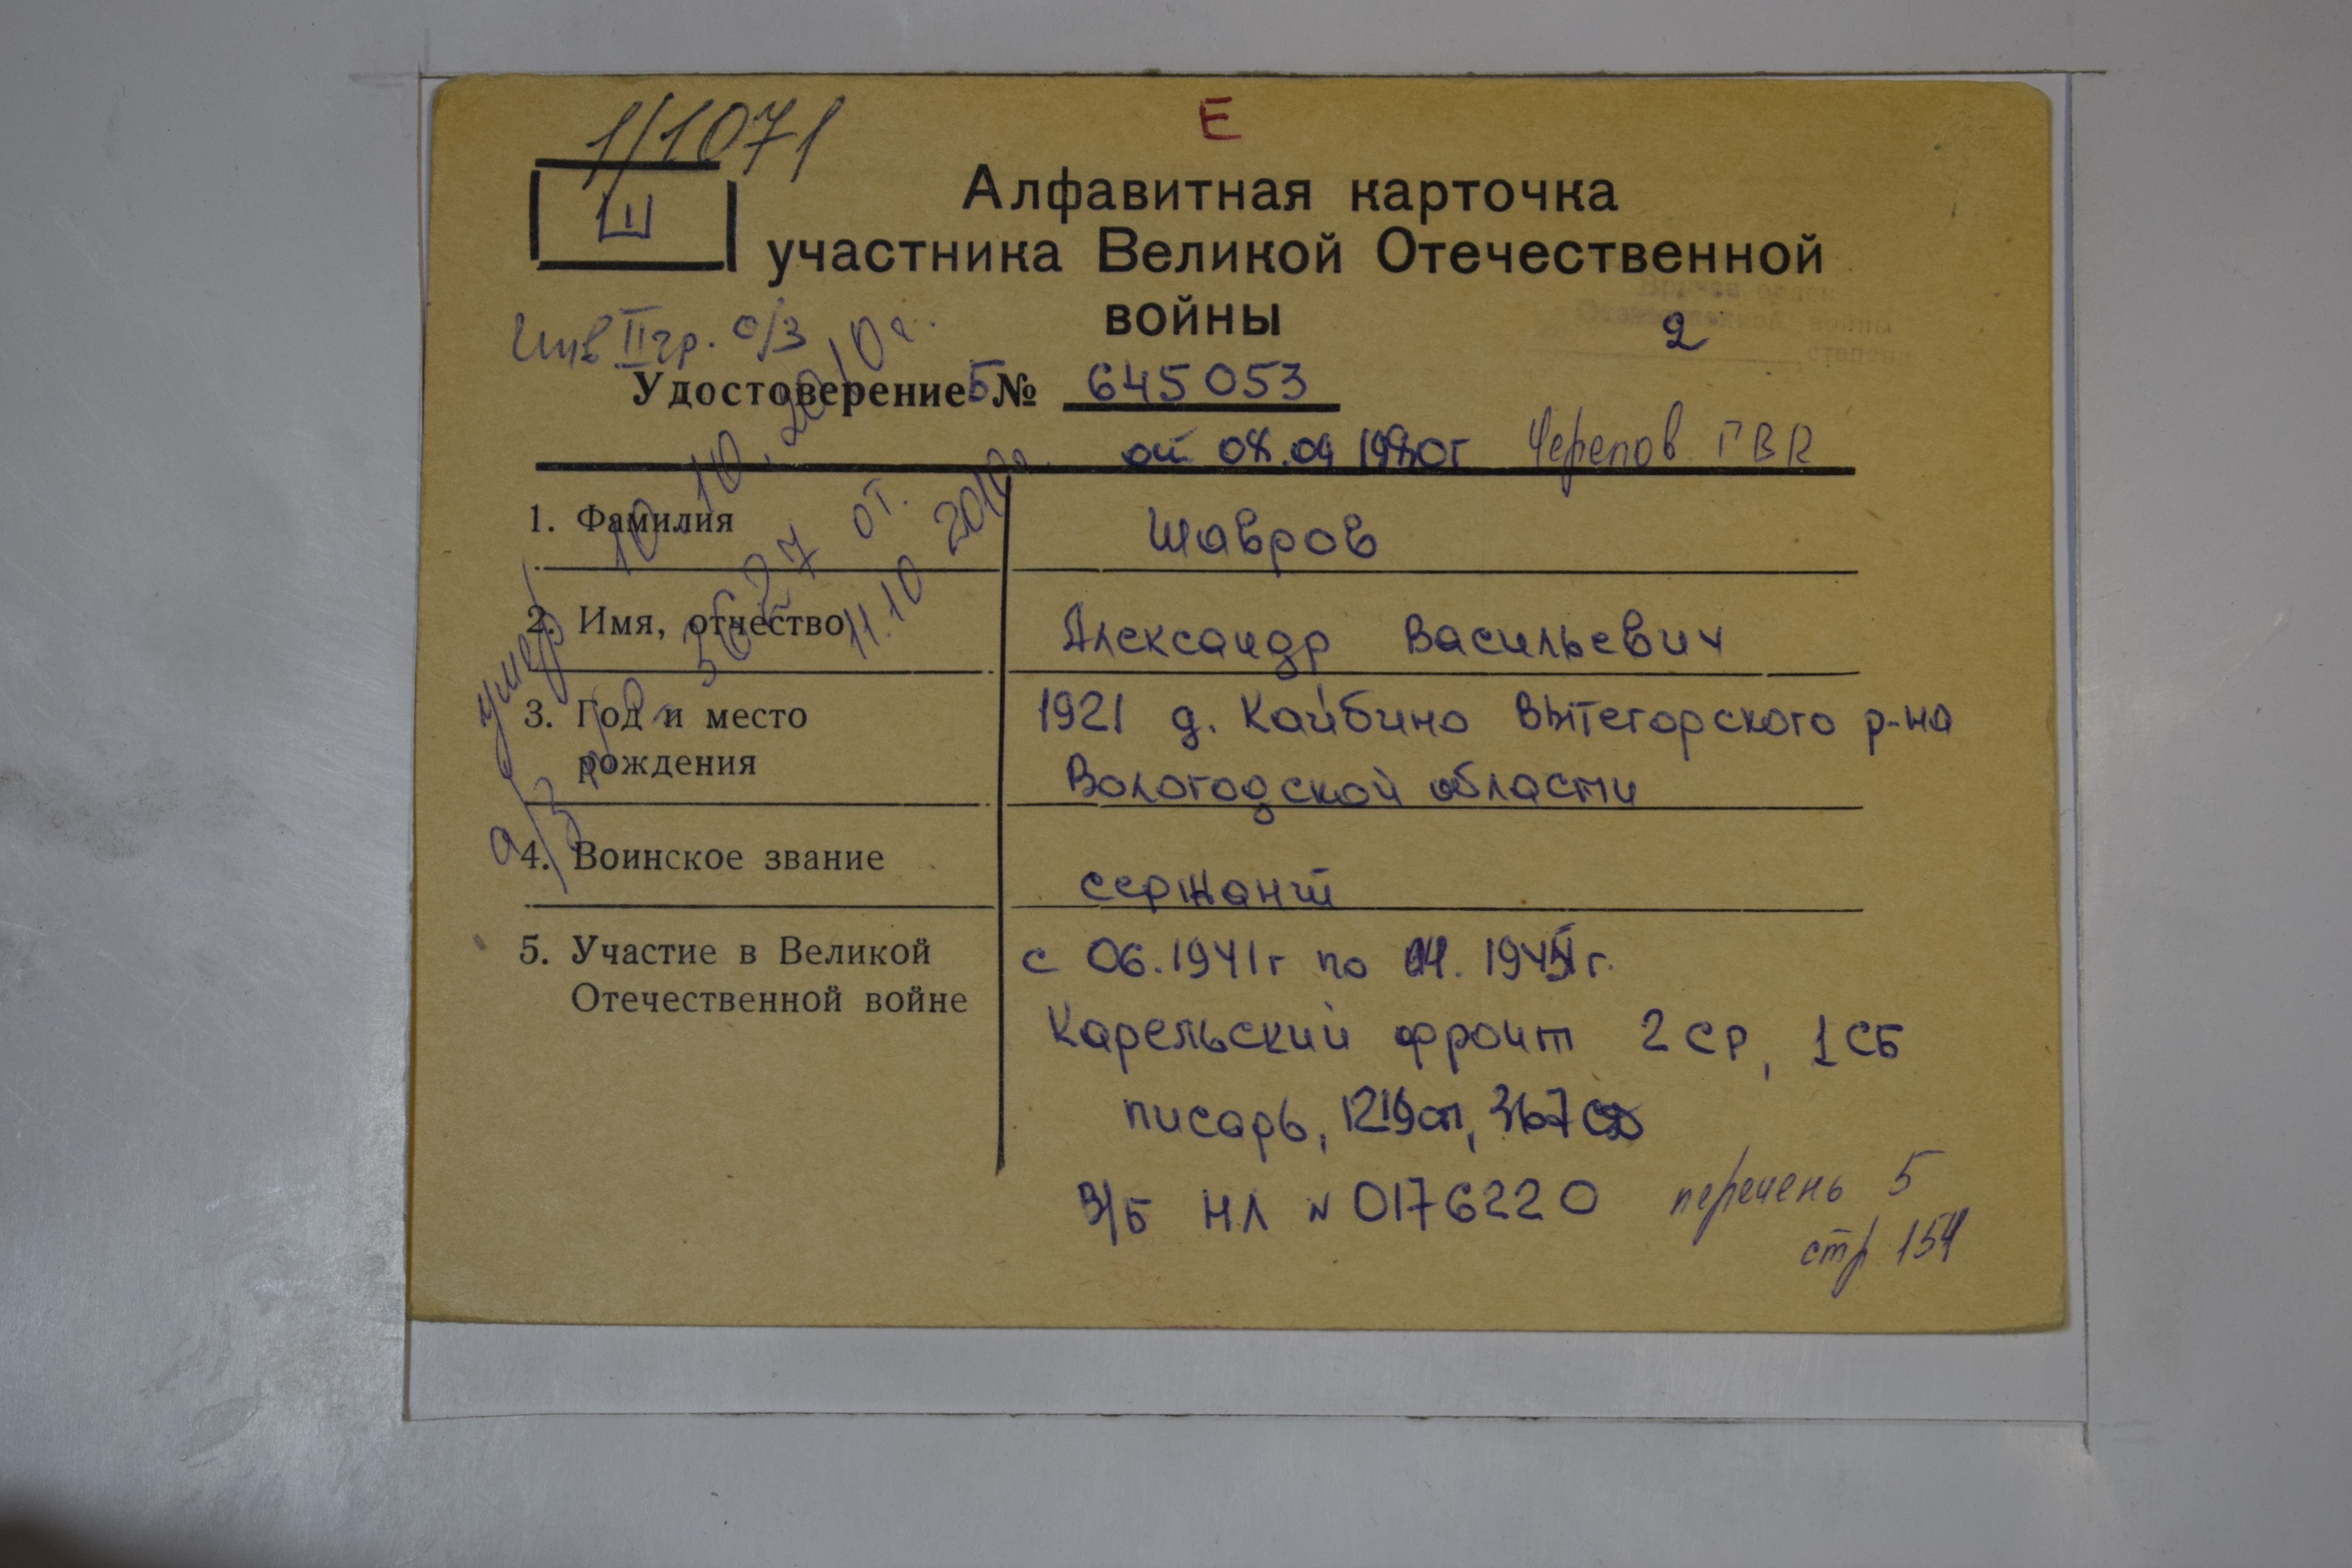 1/1071
Е
Ш
Алфавитная карточка
участника Великой Отечественной
войны
Инв II гр. о/з
Вручен орден
Отечественной войны
2 степени
Удостоверение Б № 645053
от 08.04 1980г Черепов. ГВК
1. Фамилия Шавров
2. Имя, отчество Александр Васильевич
3. Год и место рождения 1921 д. Кайбино Вытегорского р-на
Вологодской области
4. Воинское звание сержант
5. Участие в Великой Отечественной войне с 06.1941г по 1945г.
Карельский фронт 2 ср, 1 СБ
писарь, 1219сп, 367 сд
В/Б НЛ № 0176220
перечень 5
стр 154
умер 10.10.2010г.
а/з 3627 от.
11.10 2010г.